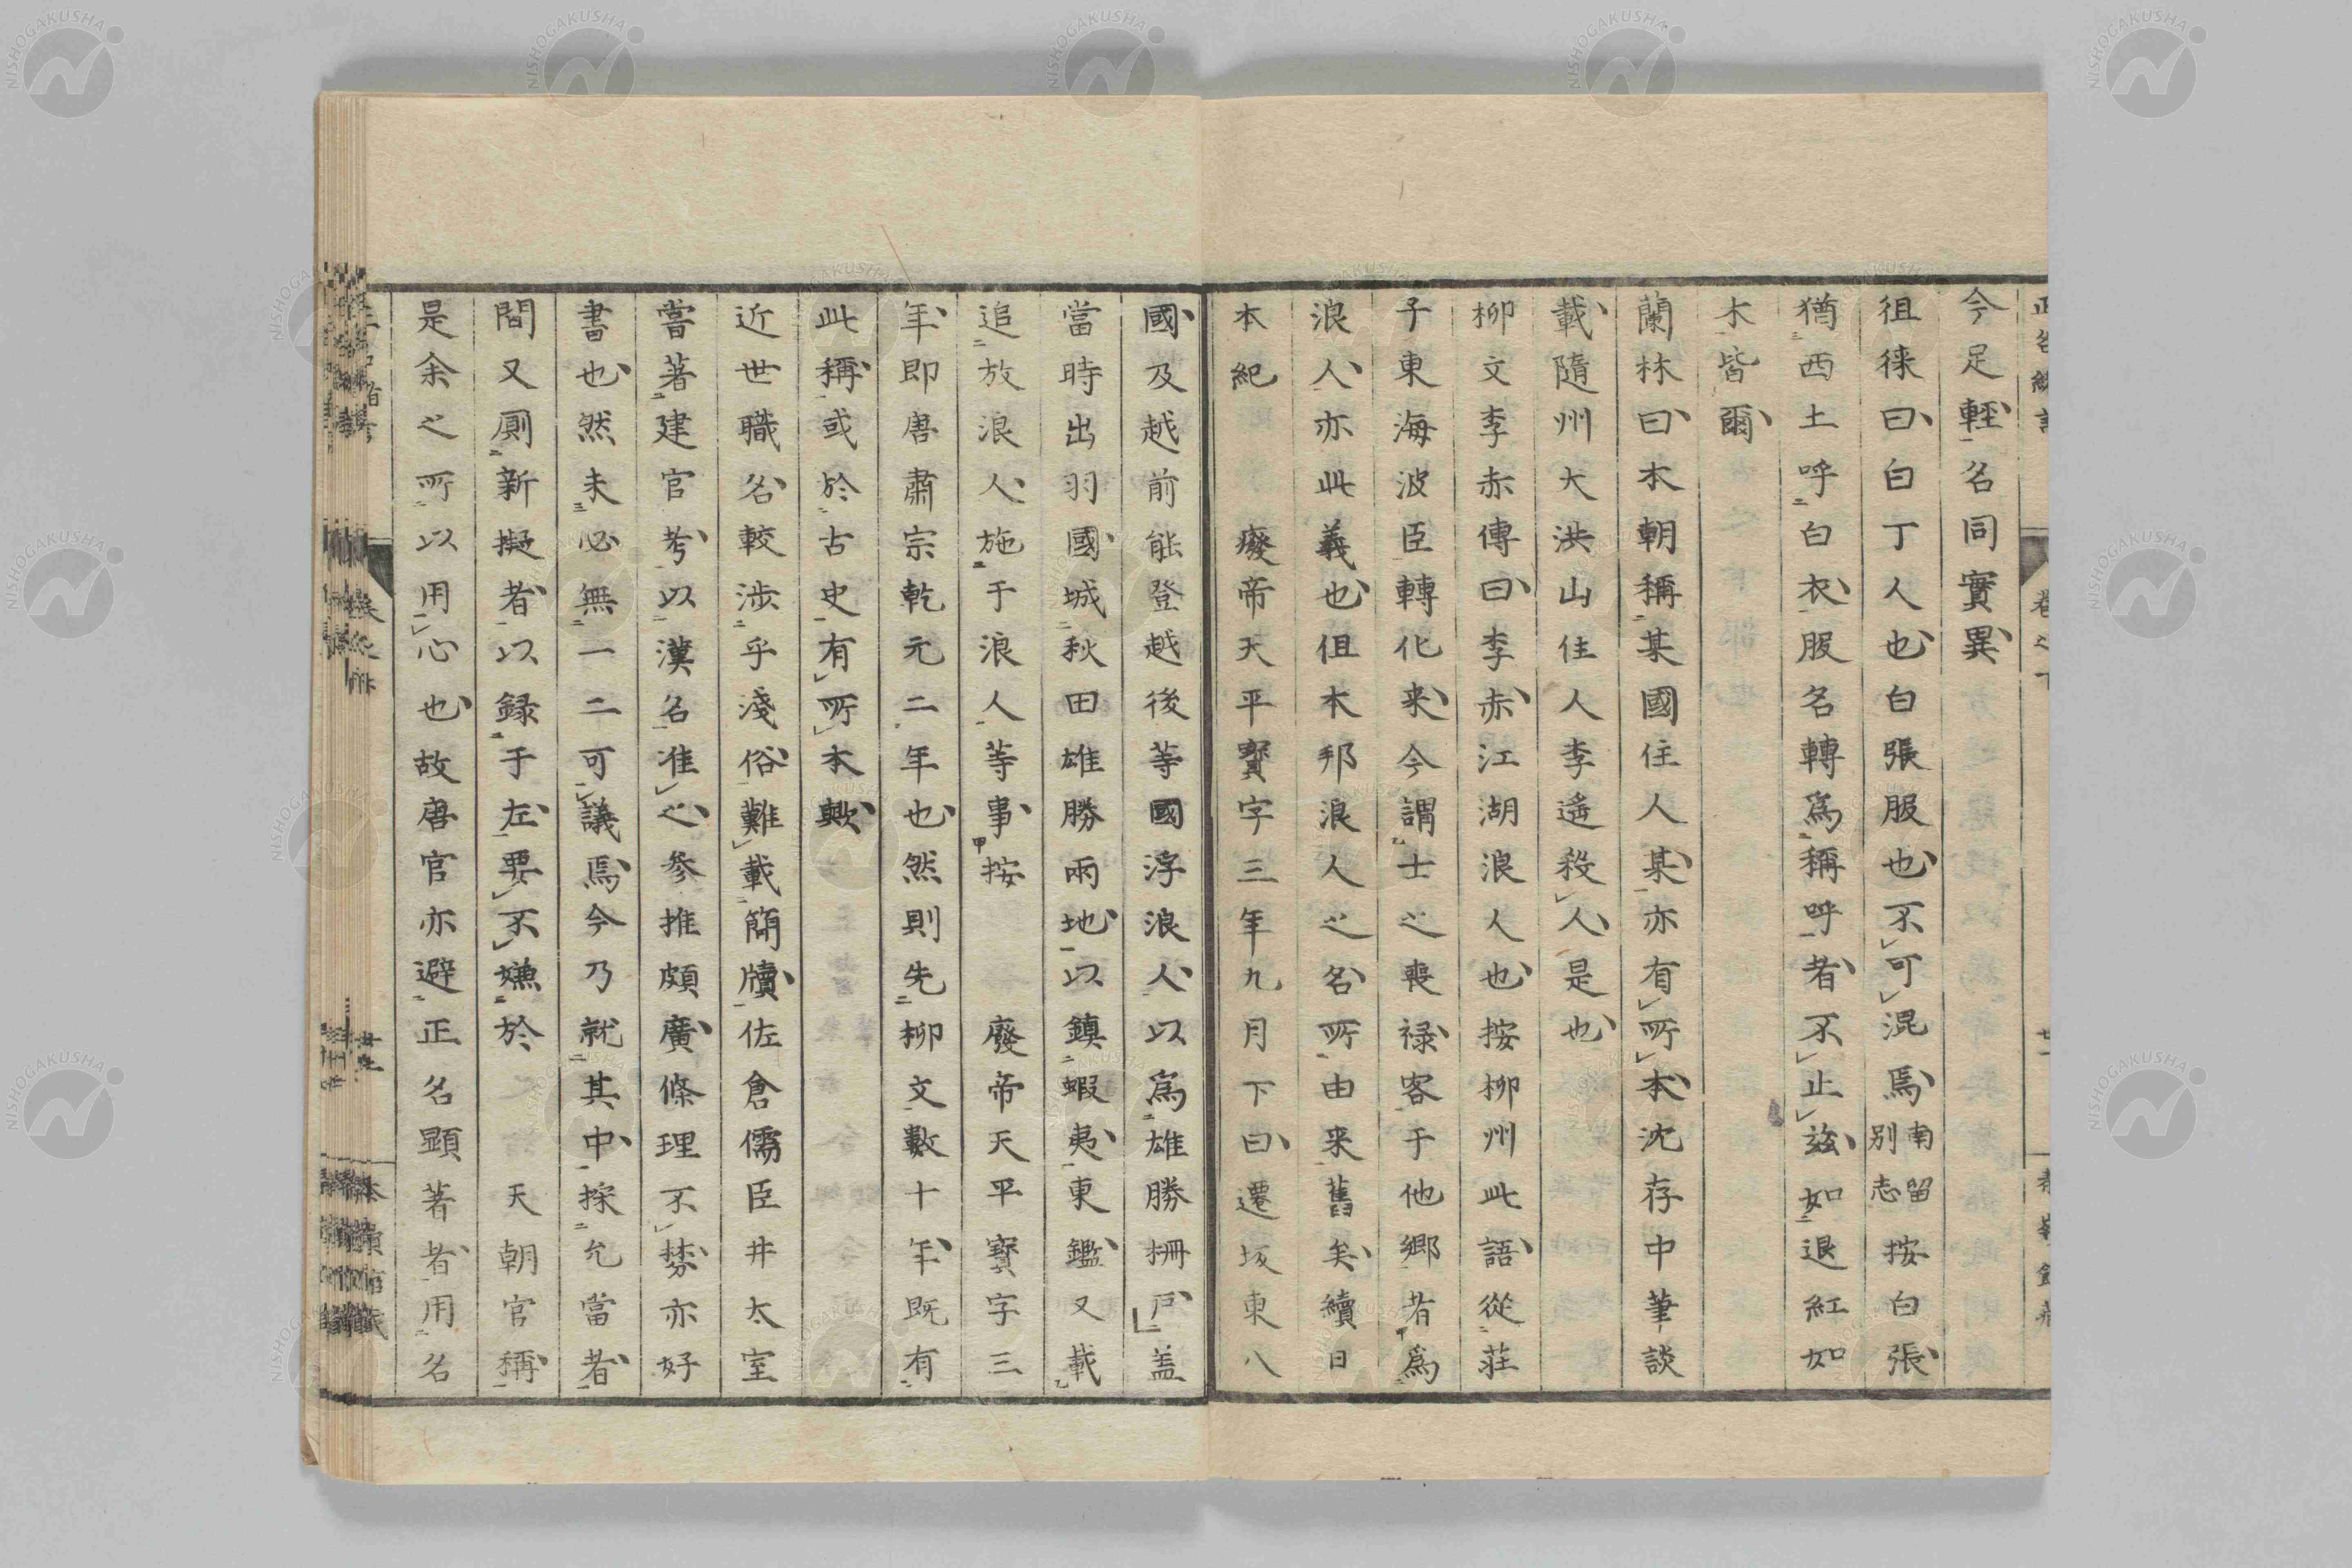 今足輕名同實異
徂徠曰白丁人也白張服也不可混焉南留別志按白張
猶西土呼白衣服名轉爲稱呼者不止茲如退紅如
木皆爾
蘭林曰本朝稱某國住人某亦有所本沈存中筆談
載隨州大洪山住人李遙殺人是也
柳文李赤傳曰李赤江湖浪人也按柳州此語從莊
子東海波臣轉化来今謂士之喪禄客于他鄉者爲
浪人亦此義也但本邦浪人之名所由来舊矣續日
本紀 廢帝天平寶字三年九月下曰遷坂東八
國及越前能登越後等國浮浪人以爲雄勝柵戸盖
當時出羽國城秋田雄勝兩地以鎮蝦夷東鑑又載
追放浪人施于浪人等事按 廢帝天平寶字三
年即唐肅宗乾元二年也然則先柳文數十年既有
此稱或於古史有所本歟
近世職名較渉乎淺俗難載簡牘佐倉儒臣井太室
嘗著建官考以漢名准之參推頗廣條理不棼亦好
書也然未必無一二可議焉今乃就其中採允當者
間又厠新擬者以録于左要不嫌於 天朝官稱
是余之所以用心也故唐官亦避正名顯著者用名
卷之下